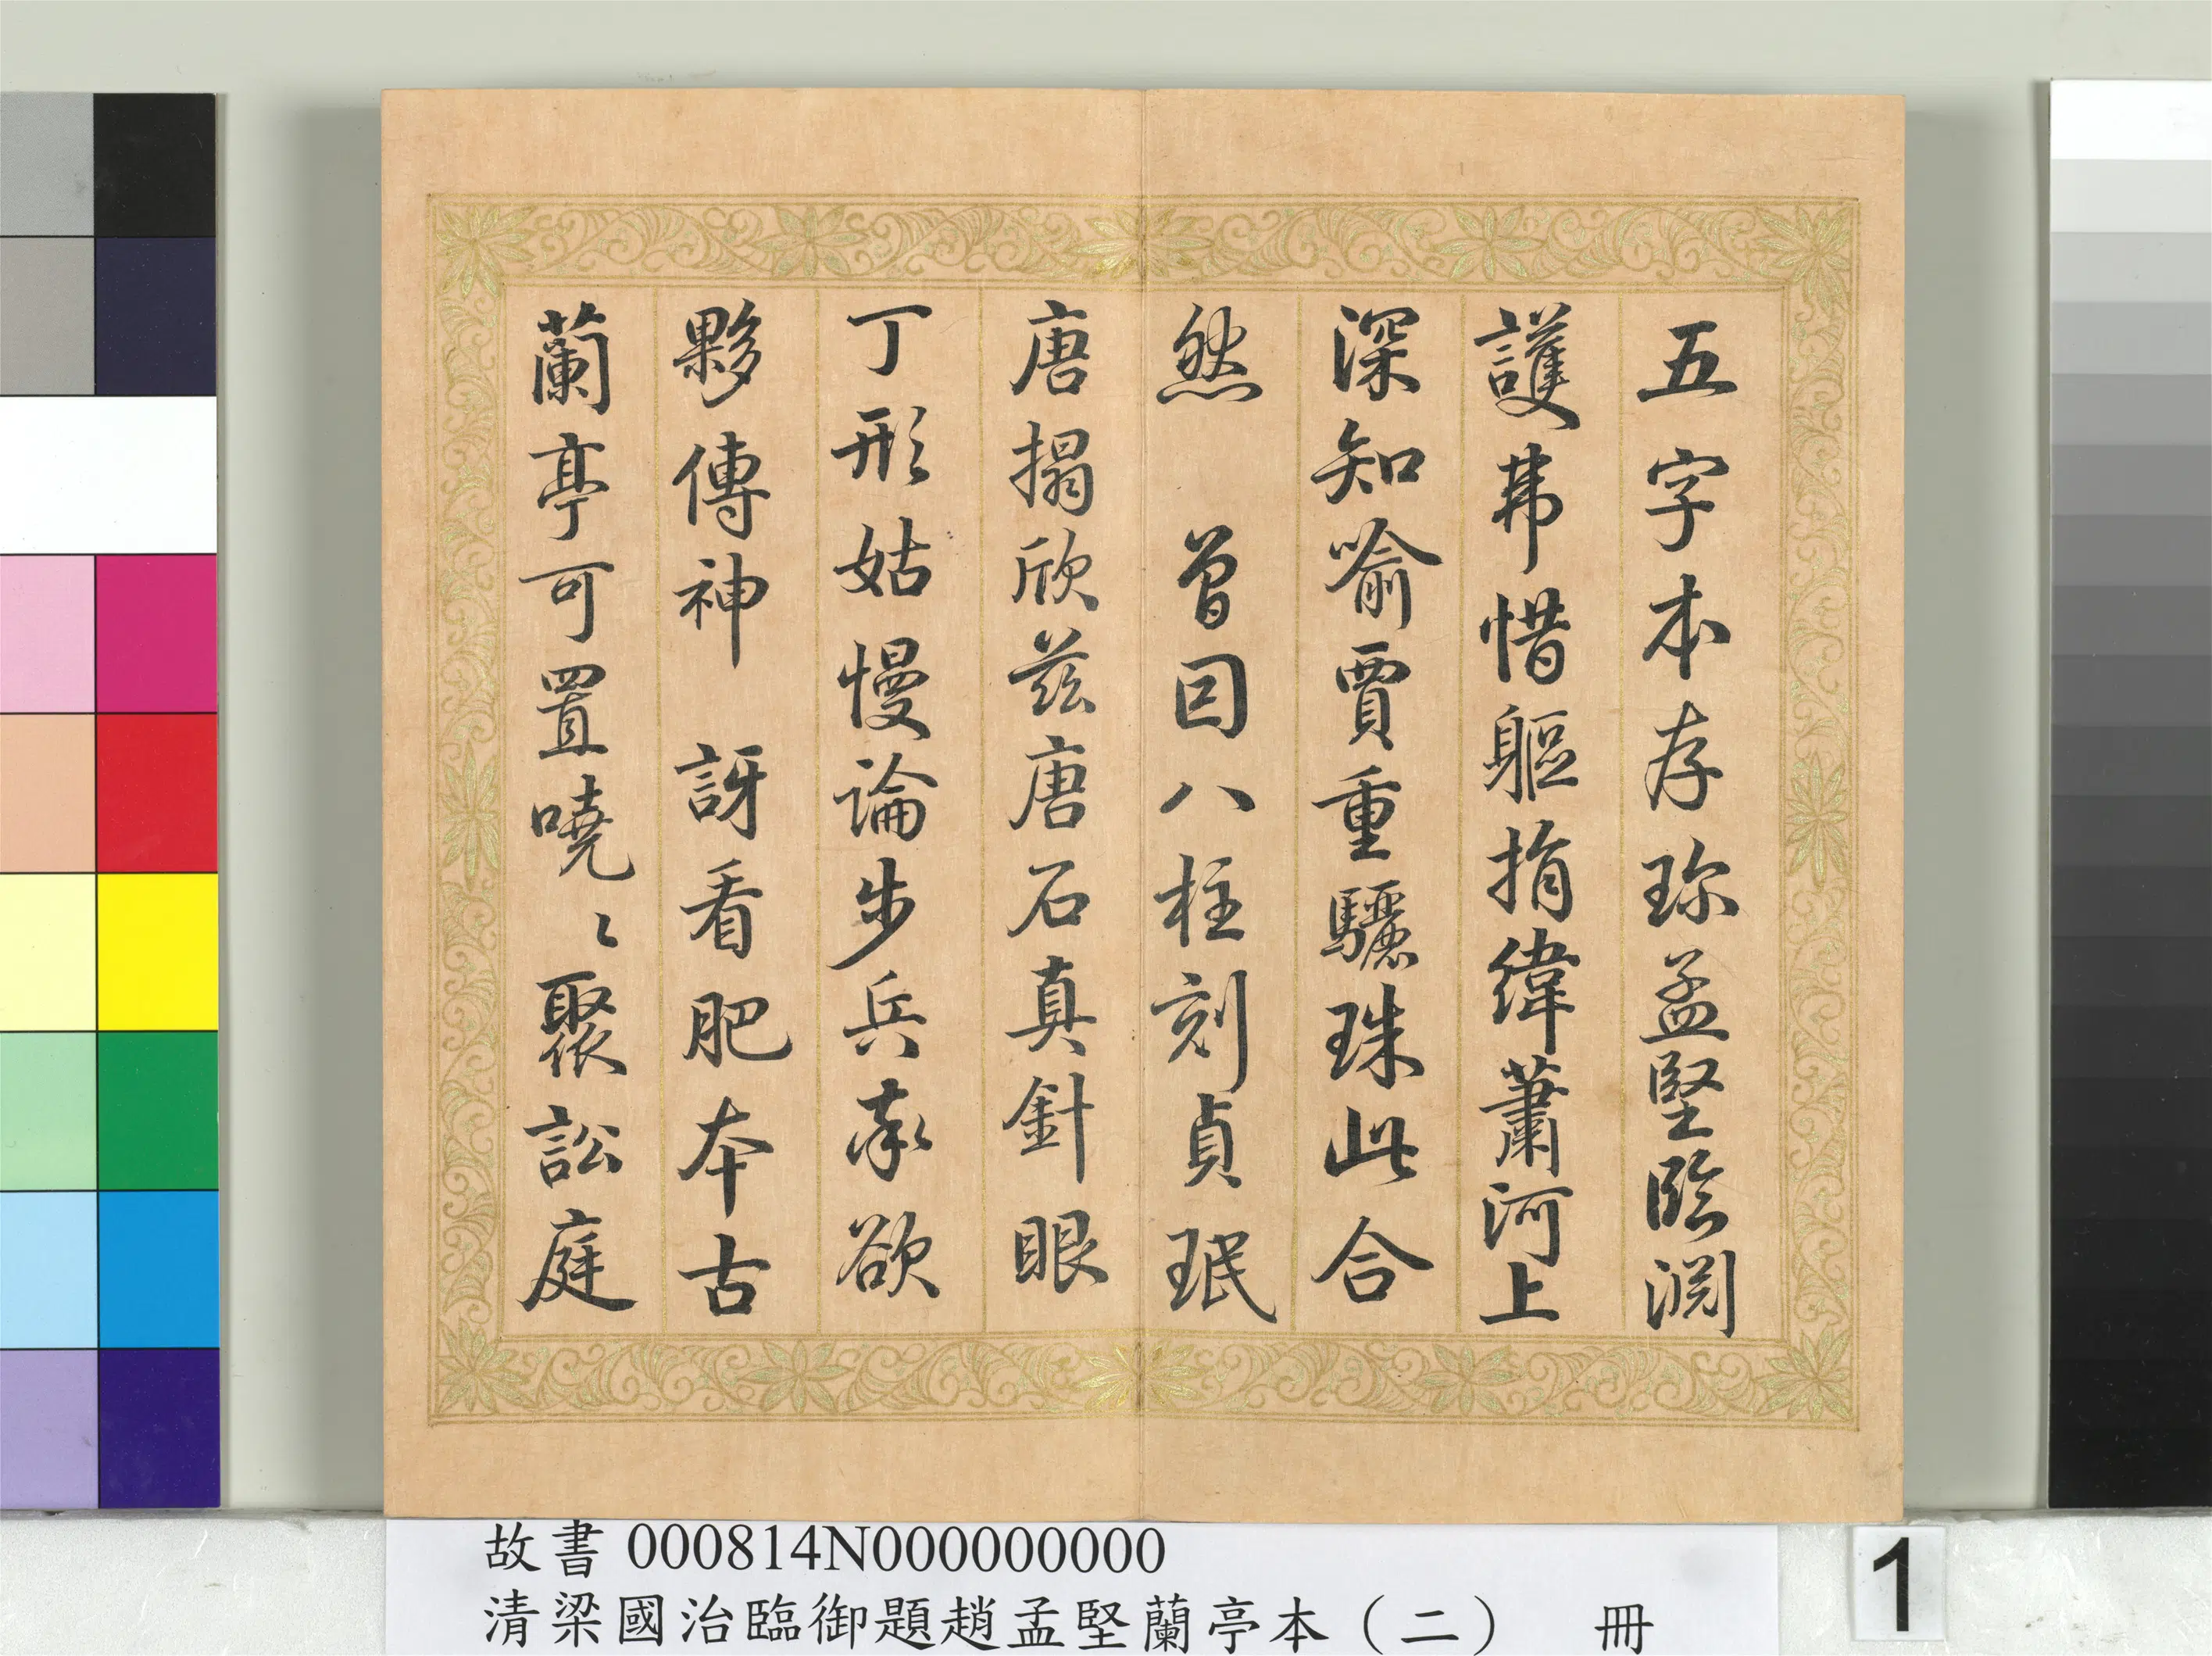 五字本存珎孟堅臨淵
護弗惜軀捐緯蕭河上
深知喻賈重驪珠此合
然　曾因八柱刻貞珉
唐搨欣茲唐石真針眼
丁形姑慢論步兵奉欲
夥傳神　訝看肥本古
蘭亭可置嘵〻聚訟庭
故書 000814N000000000
清梁國治臨御題趙孟堅蘭亭本（二）　冊
1